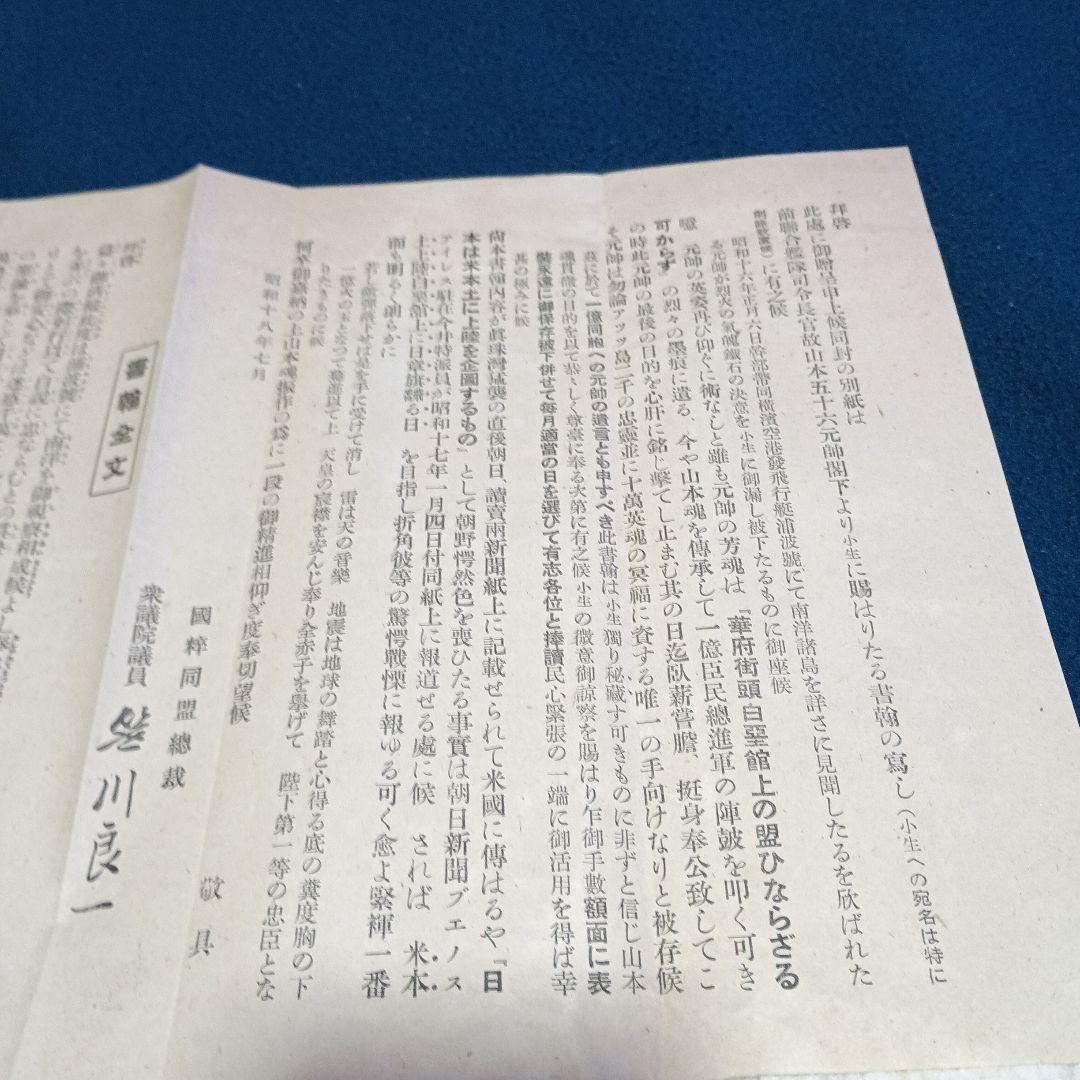 拜啓
此處に御贈呈申上候同封の別紙は
前聯合艦隊司令長官故山本五十六元帥閣下より小生に賜はりたる書翰の寫し(小生への宛名は特に
)に有之候
昭和十六年正月六日幹部帶同橫濱空港發飛行艇浦波號にて南洋諸島を詳さに見聞したるを欣ばれた
る元帥が烈火の氣魄鐵石の決意を小生に御漏し被下たるものに御座候
噫 元帥の英姿再び仰ぐに術なしと雖も元帥の芳魂は「華府街頭白堊館上の盟ひならざる
可からず」の烈々の墨痕に遺る、今や山本魂を傳承して一億臣民總進軍の陣鼓を叩く可き
の時此元帥の最後の目的を心肝に銘じ擊てし止まむ其の日迄臥薪嘗膽、挺身奉公致してこ
そ元帥は勿論アッツ島二千の忠靈並に十萬英魂の冥福に資する唯一の手向けなりと被存候
茲に於て一億同胞への元帥の遺言とも申すべき此書翰は小生獨り秘藏す可きものに非ずと信じ山本
魂貫徹の目的を以て恭々しく尊臺に奉る次第に有之候小生の微意御諒察を賜はり乍御手數額面に表
裝永遠に御保存被下併せて每月適當の日を選びて有志各位と捧讀民心緊張の一端に御活用を得ば幸
甚の極みに候
尙本書翰内容が眞珠灣猛襲の直後朝日、讀賣兩新聞紙上に記載せられて米國に傳はるや「日
本は米本土に上陸を企圖するもの」として朝野愕然色を喪ひたる事實は朝日新聞ブェノス
アイレス駐在今井特派員が昭和十七年一月四日付同紙上に報道せる處に候 されば 米本
土上陸白堊館上に日章旗飜る日 を目指し折角彼等の驚愕戰慄に報ゆる可く愈よ緊褌一番
而も明るく朗らかに
若し爆彈落下せば是を手に受けて消し 雷は天の音樂 地震は地球の舞踏と心得る底の糞度胸の下
一億火の玉となつて奮進以て上 天皇の宸襟を安んじ奉り全赤子を擧げて 陛下第一等の忠臣とな
りたきものに候
何卒御嘉納の上山本魂振作の爲に一段の御精進相仰ぎ度奉切望候
敬具
昭和十八年七月
國粹同盟總裁
衆議院議員 笹川良一
書翰全文
拜啓